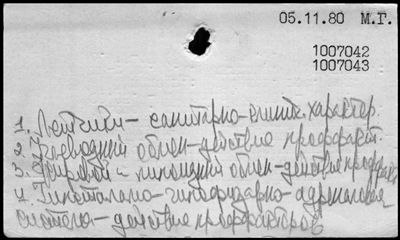 05.11.80 М.Г.
1007042
1007043
1. Летчики – санитарно-гигиен. характер.
2. Углеводный обмен – действие проффакт.
3. Жировой и липоидный обмен – действие проффакт.
4. Гипоталамо-гипофизарно-адреналовая
система – действие проффакторов